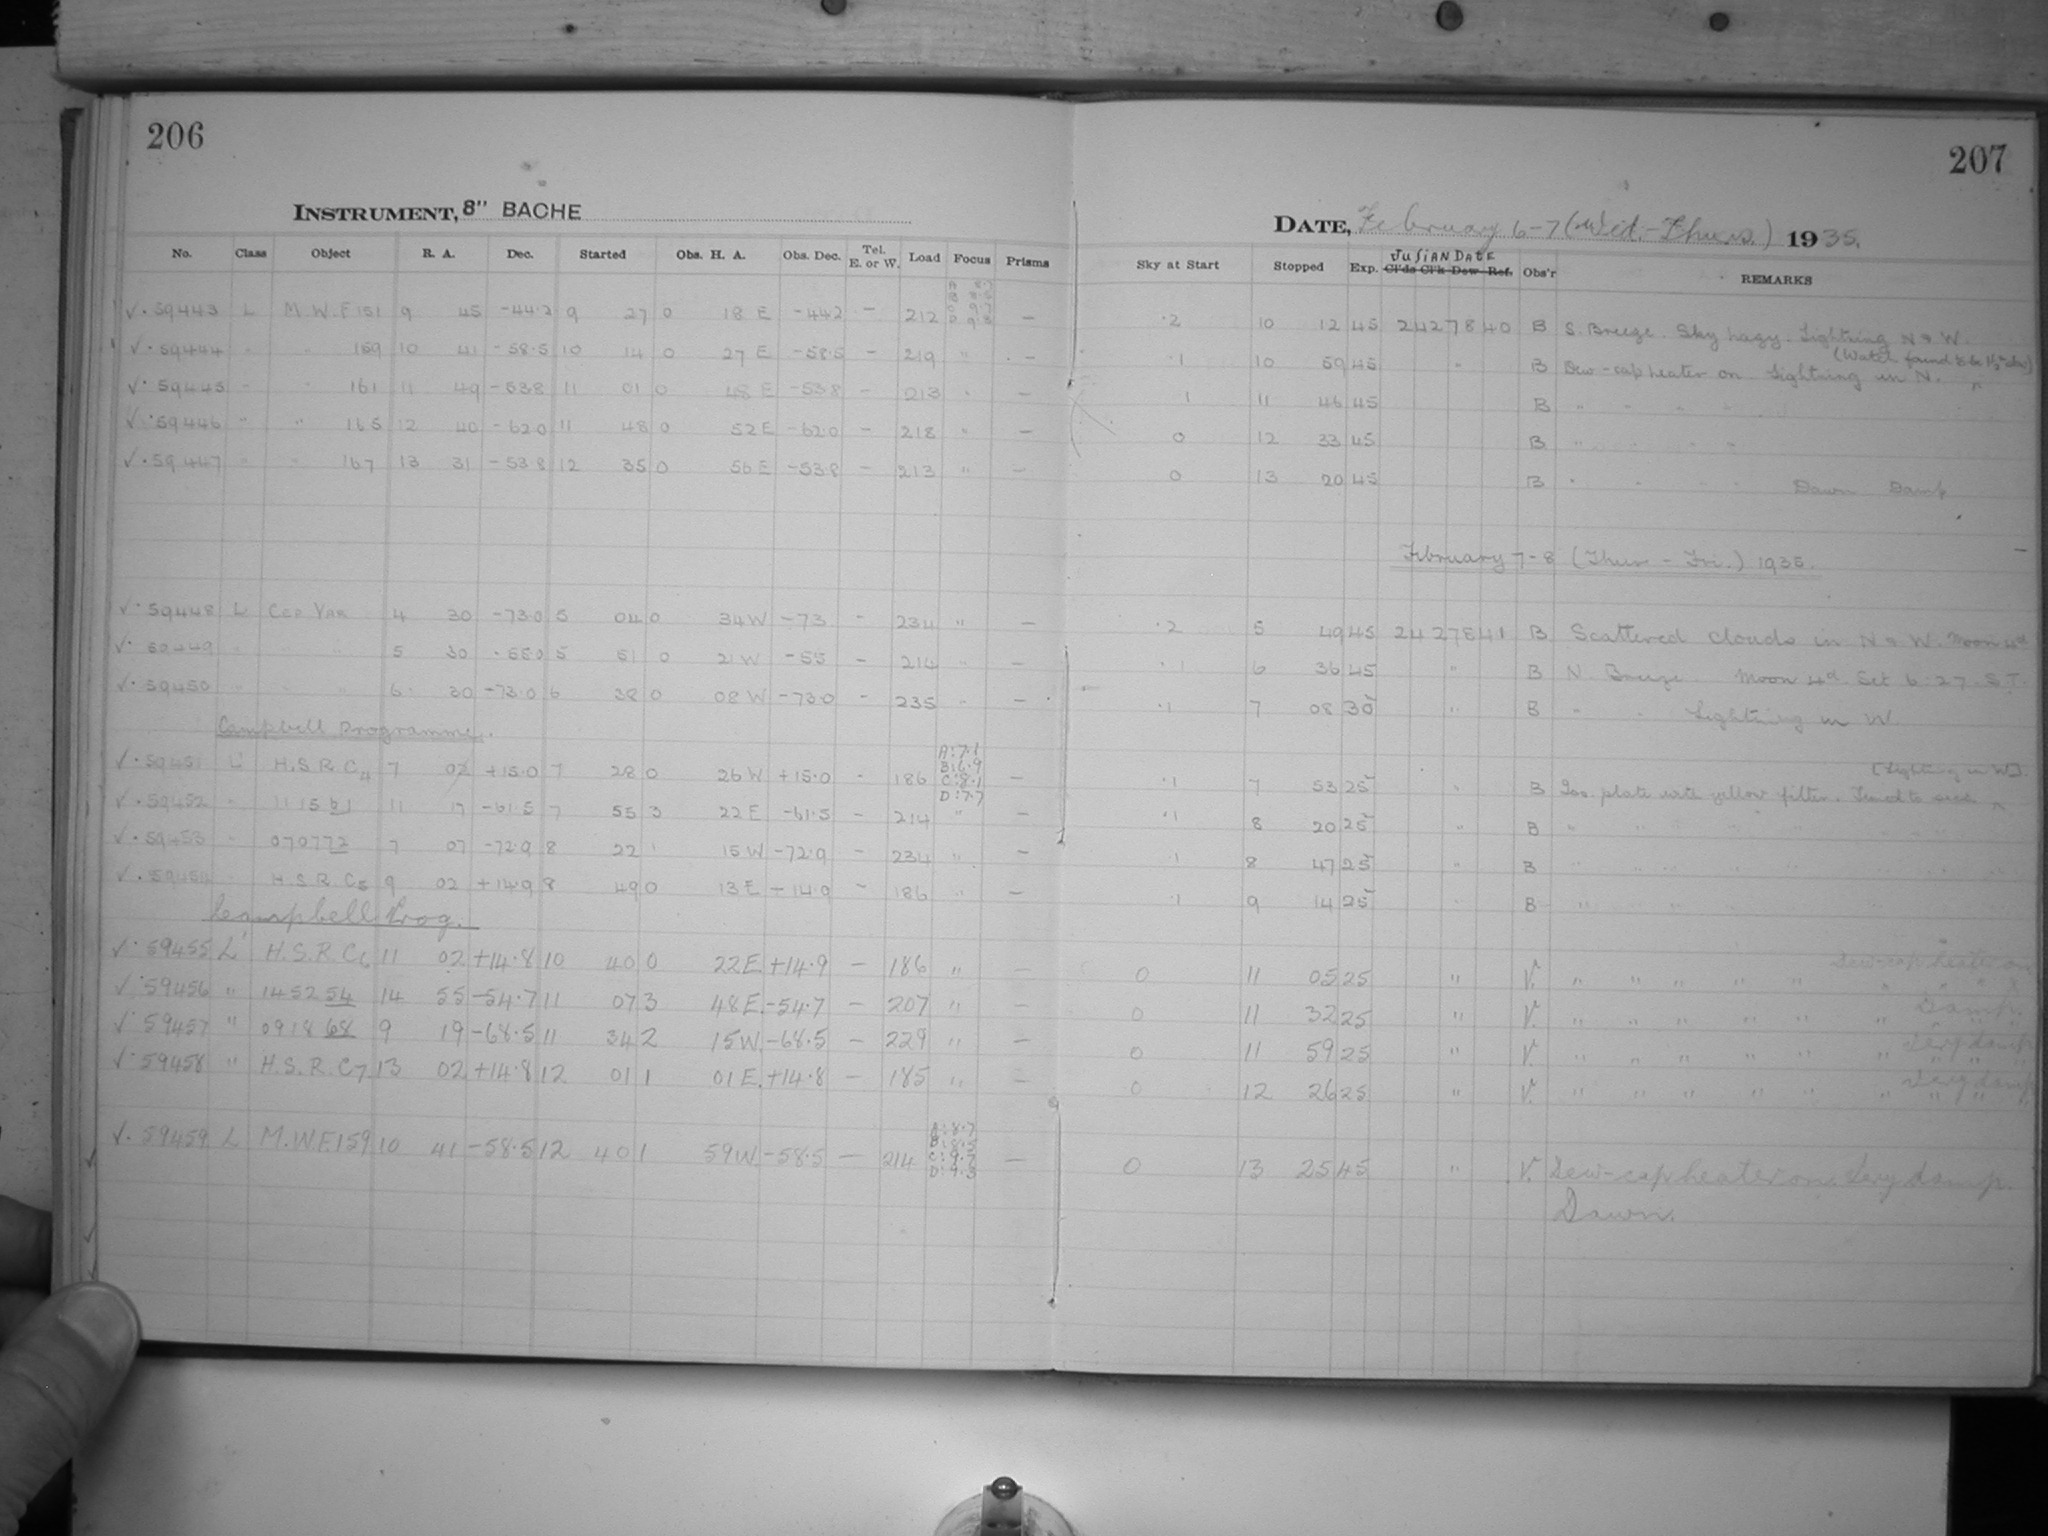 206
INSTRUMENT, 8" BACHE
No. Class Object R. A. Dec. Started Obs. H. A. Obs. Dec. Tel. E. or W. Load Focus Prisms
✓· 59443 L M.W.F 151 9 45 -44.2 9 27 0 18 E -44.2 - 212 -
✓· 59444 " " 159 10 41 -58.5 10 14 0 27 E -58.5 - 219 " -
✓· 59445 " " 161 11 49 -53.8 11 01 0 48 E -53.8 - 213 " -
✓· 59446 " " 165 12 40 -62.0 11 48 0 52 E -62.0 - 218 " -
✓· 59447 " " 167 13 31 -53.8 12 35 0 56 E -53.8 - 213 " -
✓· 59448 L CEP VAR 4 30 -73.0 5 04 0 34 W -73 - 234 " -
✓· 59449 " " 5 30 -55.0 5 51 0 21 W -55 - 214 " -
✓· 59450 " " 6 30 -73.0 6 38 0 08 W -73.0 - 235 " -
Campbell Programme.
✓· 59451 L' H.S.R.C4 7 02 +15.0 7 28 0 26 W +15.0 - 186 A:7.1 B:6.9 C:8.1 D:7.7 -
✓· 59452 " 111561 11 17 -61.5 7 55 3 22 E -61.5 - 214 " -
✓· 59453 " 070772 7 07 -72.9 8 22 1 15 W -72.9 - 234 " -
✓· 59454 " H.S.R.C5 9 02 +14.9 8 49 0 13 E +14.9 - 186 " -
Campbell Prog.
✓· 59455 L' H.S.R.C6 11 02 +14.8 10 40 0 22 E +14.9 - 186 " -
✓· 59456 " 145254 14 55 -54.7 11 07 3 48 E. -54.7 - 207 " -
✓· 59457 " 091868 9 19 -68.5 11 34 2 15 W. -68.5 - 229 " -
✓· 59458 " H.S.R.C7 13 02 +14.8 12 01 1 01 E. +14.8 - 185 " -
✓. 59459 L M.W.F.159 10 41 -58.5 12 40 1 59 W. -58.5 - 214 A:8.7 B:8.5 C:9.7 D:9.3 -
207
DATE, February 6-7 (Wed.-Thurs) 1935.
Sky at Start Stopped Exp. JULIAN DATE Cl'ds Cl'k Dew Ref. Obs'r REMARKS
.2 10 12 45 2427840 B S. Breeze. Sky hazy. Lightning N & W.
.1 10 59 45 " B Dew-cap heater on Lightning in N.
.1 11 46 45 B " " " "
0 12 33 45 B " " " "
0 13 20 45 B " " " " Dawn Damp
February 7-8 (Thur - Fri.) 1935.
.2 5 49 45 2427841 B Scattered clouds in N & W. Moon 4d
.1 6 36 45 " B N. Breeze Moon 4d Set 6.27 S.T.
.1 7 08 30 " B " " Lightning in W.
.1 7 53 25 " B Iso. plate with yellow filter.
.1 8 20 25 " B " " " "
.1 8 47 25 " B " " " "
.1 9 14 25 " B " " " "
0 11 05 25 " V. " " " " " Dew-cap heater on
0 11 32 25 " V. " " " " " " Damp.
0 11 59 25 " V. " " " " " " Very damp
0 12 26 25 " V. " " " " " " Very damp
0 13 25 45 " V. Dew-cap heater on. Very damp.
Dawn.